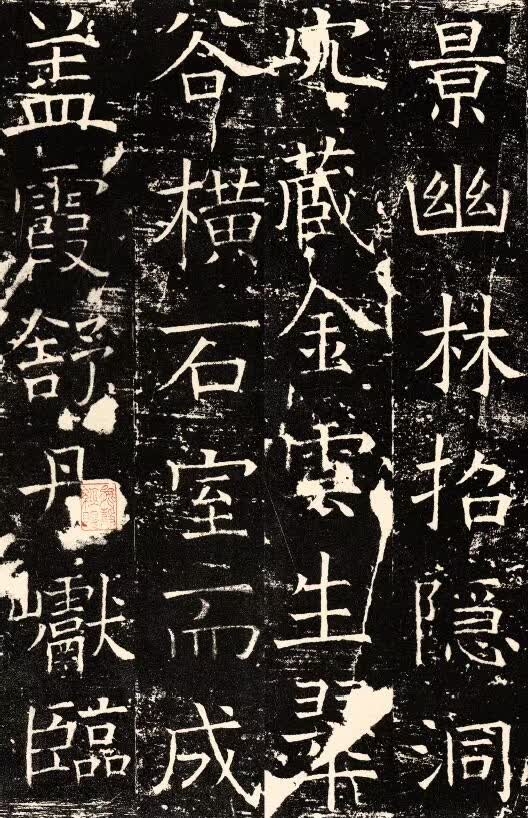 景幽林招隐洞
穴藏金雲生翠
谷橫石室而成
盖霞舒丹巘臨